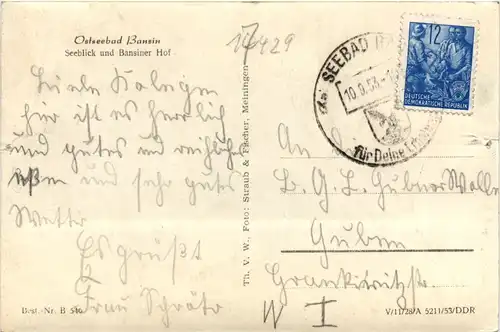 Ostseebad Bansin
Seeblick und Bansiner Hof
14429
Liebe Kolegen
hier ist es herrlich
und gutes und reichlich
eßen und sehr gutes
Wetter
Es grüßt
Frau
Best.-Nr. B
Th. V. W., Foto: Straub & Fischer, Meiningen
SEEBAD
10.9.53
für Deine
12
DEUTSCHE
DEMOKRATISCHE REPUBLIK
An
B. G. L. Gubener Wolle
Guben
W I
V/11/28/A 5211/53/DDR